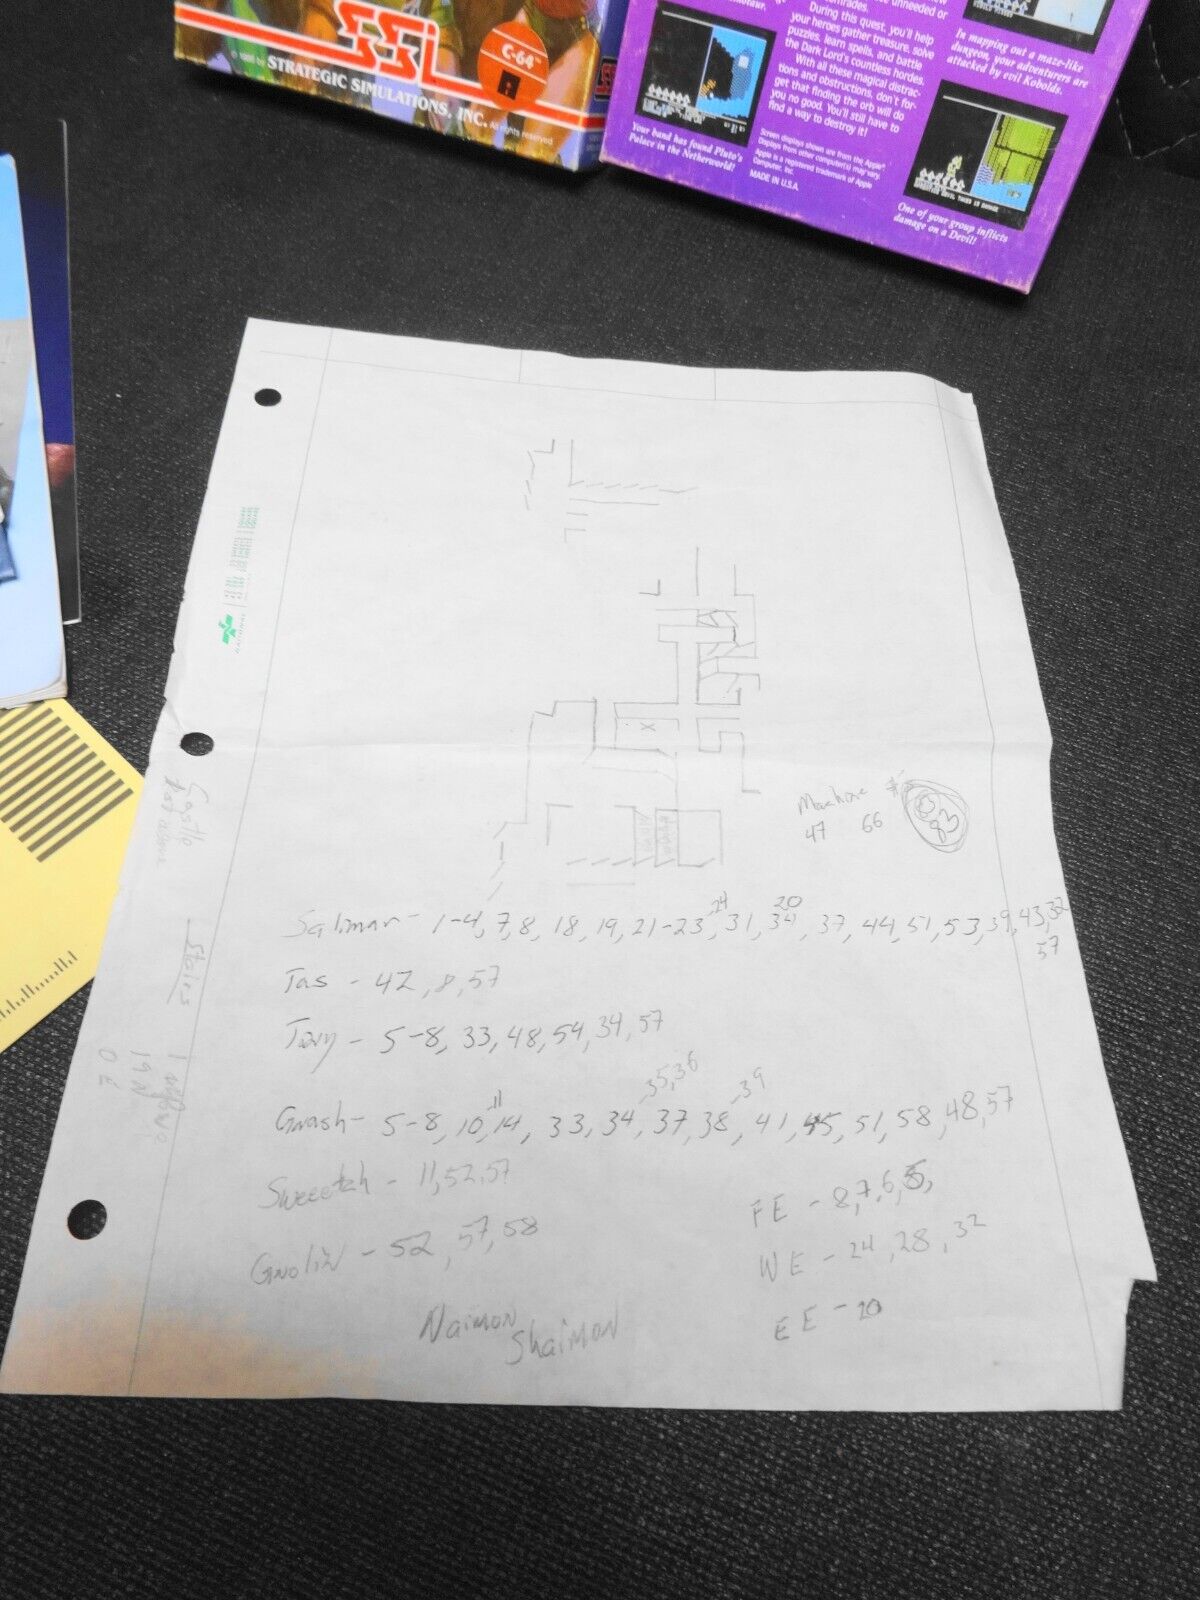 SSI
C-64™
STRATEGIC SIMULATIONS, INC. All rights reserved
unneeded or
During this quest, you'll help
your heroes gather treasure, solve
puzzles, learn spells, and battle
the Dark Lord's countless hordes.
With all these magical distrac-
tions and obstructions, don't for-
get that finding the orb will do
you no good. You'll still have to
find a way to destroy it!
Screen displays shown are from the Apple®.
Displays from other computer(s) may vary.
Apple is a registered trademark of Apple
Computer, Inc.
MADE IN U.S.A.
Your band has found Pluto's
Palace in the Netherworld!
In mapping out a maze-like
dungeon, your adventurers are
attacked by evil Kobolds.
DEVIL TAKES 12 DAMAGE
One of your group inflicts
damage on a Devil!
NATIONAL
X
Machine #'s
47 66 93
Castle
Stairs
19 N
0 E
Saliman - 1-4, 7, 8, 18, 19, 21-23, 24, 31, 34, 20, 37, 44, 51, 53, 39, 43, 32
57
Tas - 42, 8, 57
Tavy - 5-8, 33, 48, 54, 34, 57
Gnash - 5-8, 10, 11, 14, 33, 34, 35, 36, 37, 38, 39, 41, 45, 51, 58, 48, 57
Sweeetch - 11, 52, 57
Gnolin - 52, 57, 58
FE - 8, 7, 6, 5,
WE - 24, 28, 32
EE - 20
Naimon
Shaimon